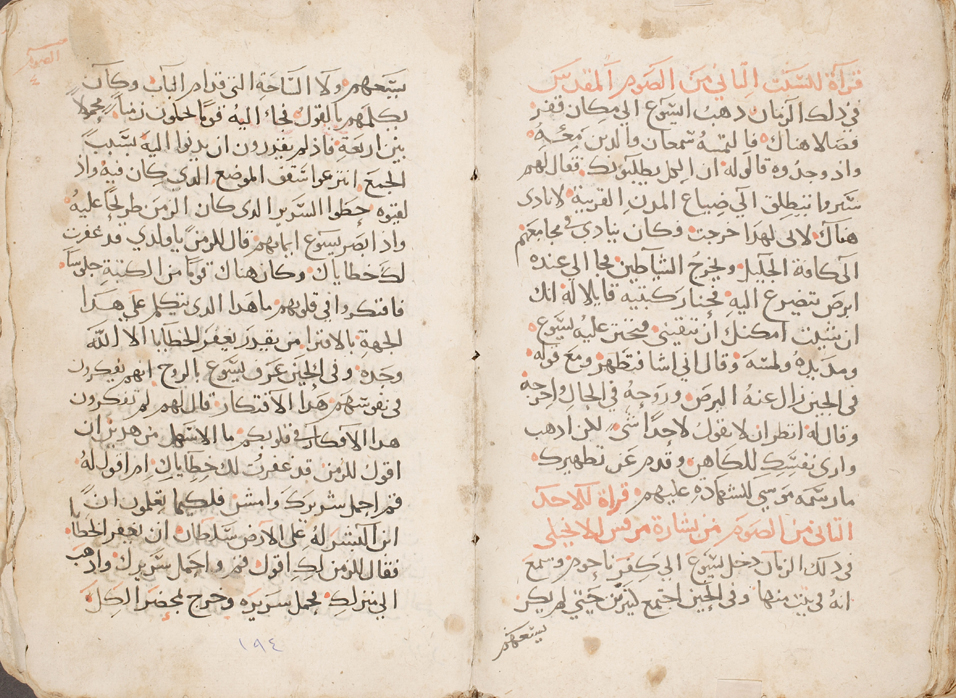 قرأة للسبت الثاني من الصوم المقدس
في ذلك الزمان ذهب ايسوع الى مكان قفر
فصلا هناك فالتمسه سمعان والذين معه
واذ وجدوه قالو له ان الكل يطلبونك فقال لهم
سيروا ننطلق الى ضياع المدن القريبة لانادى
هناك لاني لهذا خرجت وكان ينادي في مجامعهم
الى كافة الجليل ويخرج الشياطين فجا الي عنده
ابرص يتضرع اليه فحنا ركبتيه قايلا له انك
ان شيت امكنك ان تنقيني فتحنن عليه ايسوع
ومد يده ولمسه وقال اني اشا فتطهر ومع قوله
في الحين زال عنه البرص وزوجه في الحال واخرجه
وقال له انظر ان لا تقول لاحد اشيء لكن اذهب
واري نفسك للكاهن وقدم عن تطهيرك
ما رسمه موسي للشهاده عليهم قرأة للاحد
الثاني من الصوم من بشارة مرقس الانجيلي
في ذلك الزمان دخل ايسوع الي كفرناحوم وسمع
انه في بيت منها وفي الحين اجتمع كثيرين حتي لم يكن
يسعهم
الصوم
يسعهم ولا الساحة التي قدام الباب وكان
يكلمهم بالقول فجاء اليه قوما يحملون زمنا محمولا
بين اربعة فاذ لم يقدرون ان يدنوا اليه بسبب
الجمع انتزعوا سقف الموضع الذي كان فيه واذ
نقبوه حطوا السرير الذي كان الزمن طريحا عليه
واذ ابصر يسوع ايمانهم قال للزمن يا ولدي قد غفرت
لك خطاياك وكان هناك قوما من الكتبة جلوسا
فافتكروا في قلوبهم ما هذا الذي يتكلم علي هذا
الجهة بالافترا من يقدر يغفر الخطايا الا الله
وحده وفي الحين عرف ايسوع بالروح انهم يفكرون
في نفوسهم هذا الافتكار قال لهم لم تفكرون
هذا الافكار في قلوبكم ما الاسهل من هذين ان
اقول للزمن قد غفرت لك خطاياك ام اقول له
قم احمل سريرك وامش فلكيما تعلمون ان
ابن البشر له على الارض سلطان ان يغفر الخطايا
فقال للزمن لك اقول قم واحمل سريرك واذهب
الي منزلك فحمل سريره وخرج بمحضر الكل
١٩٤